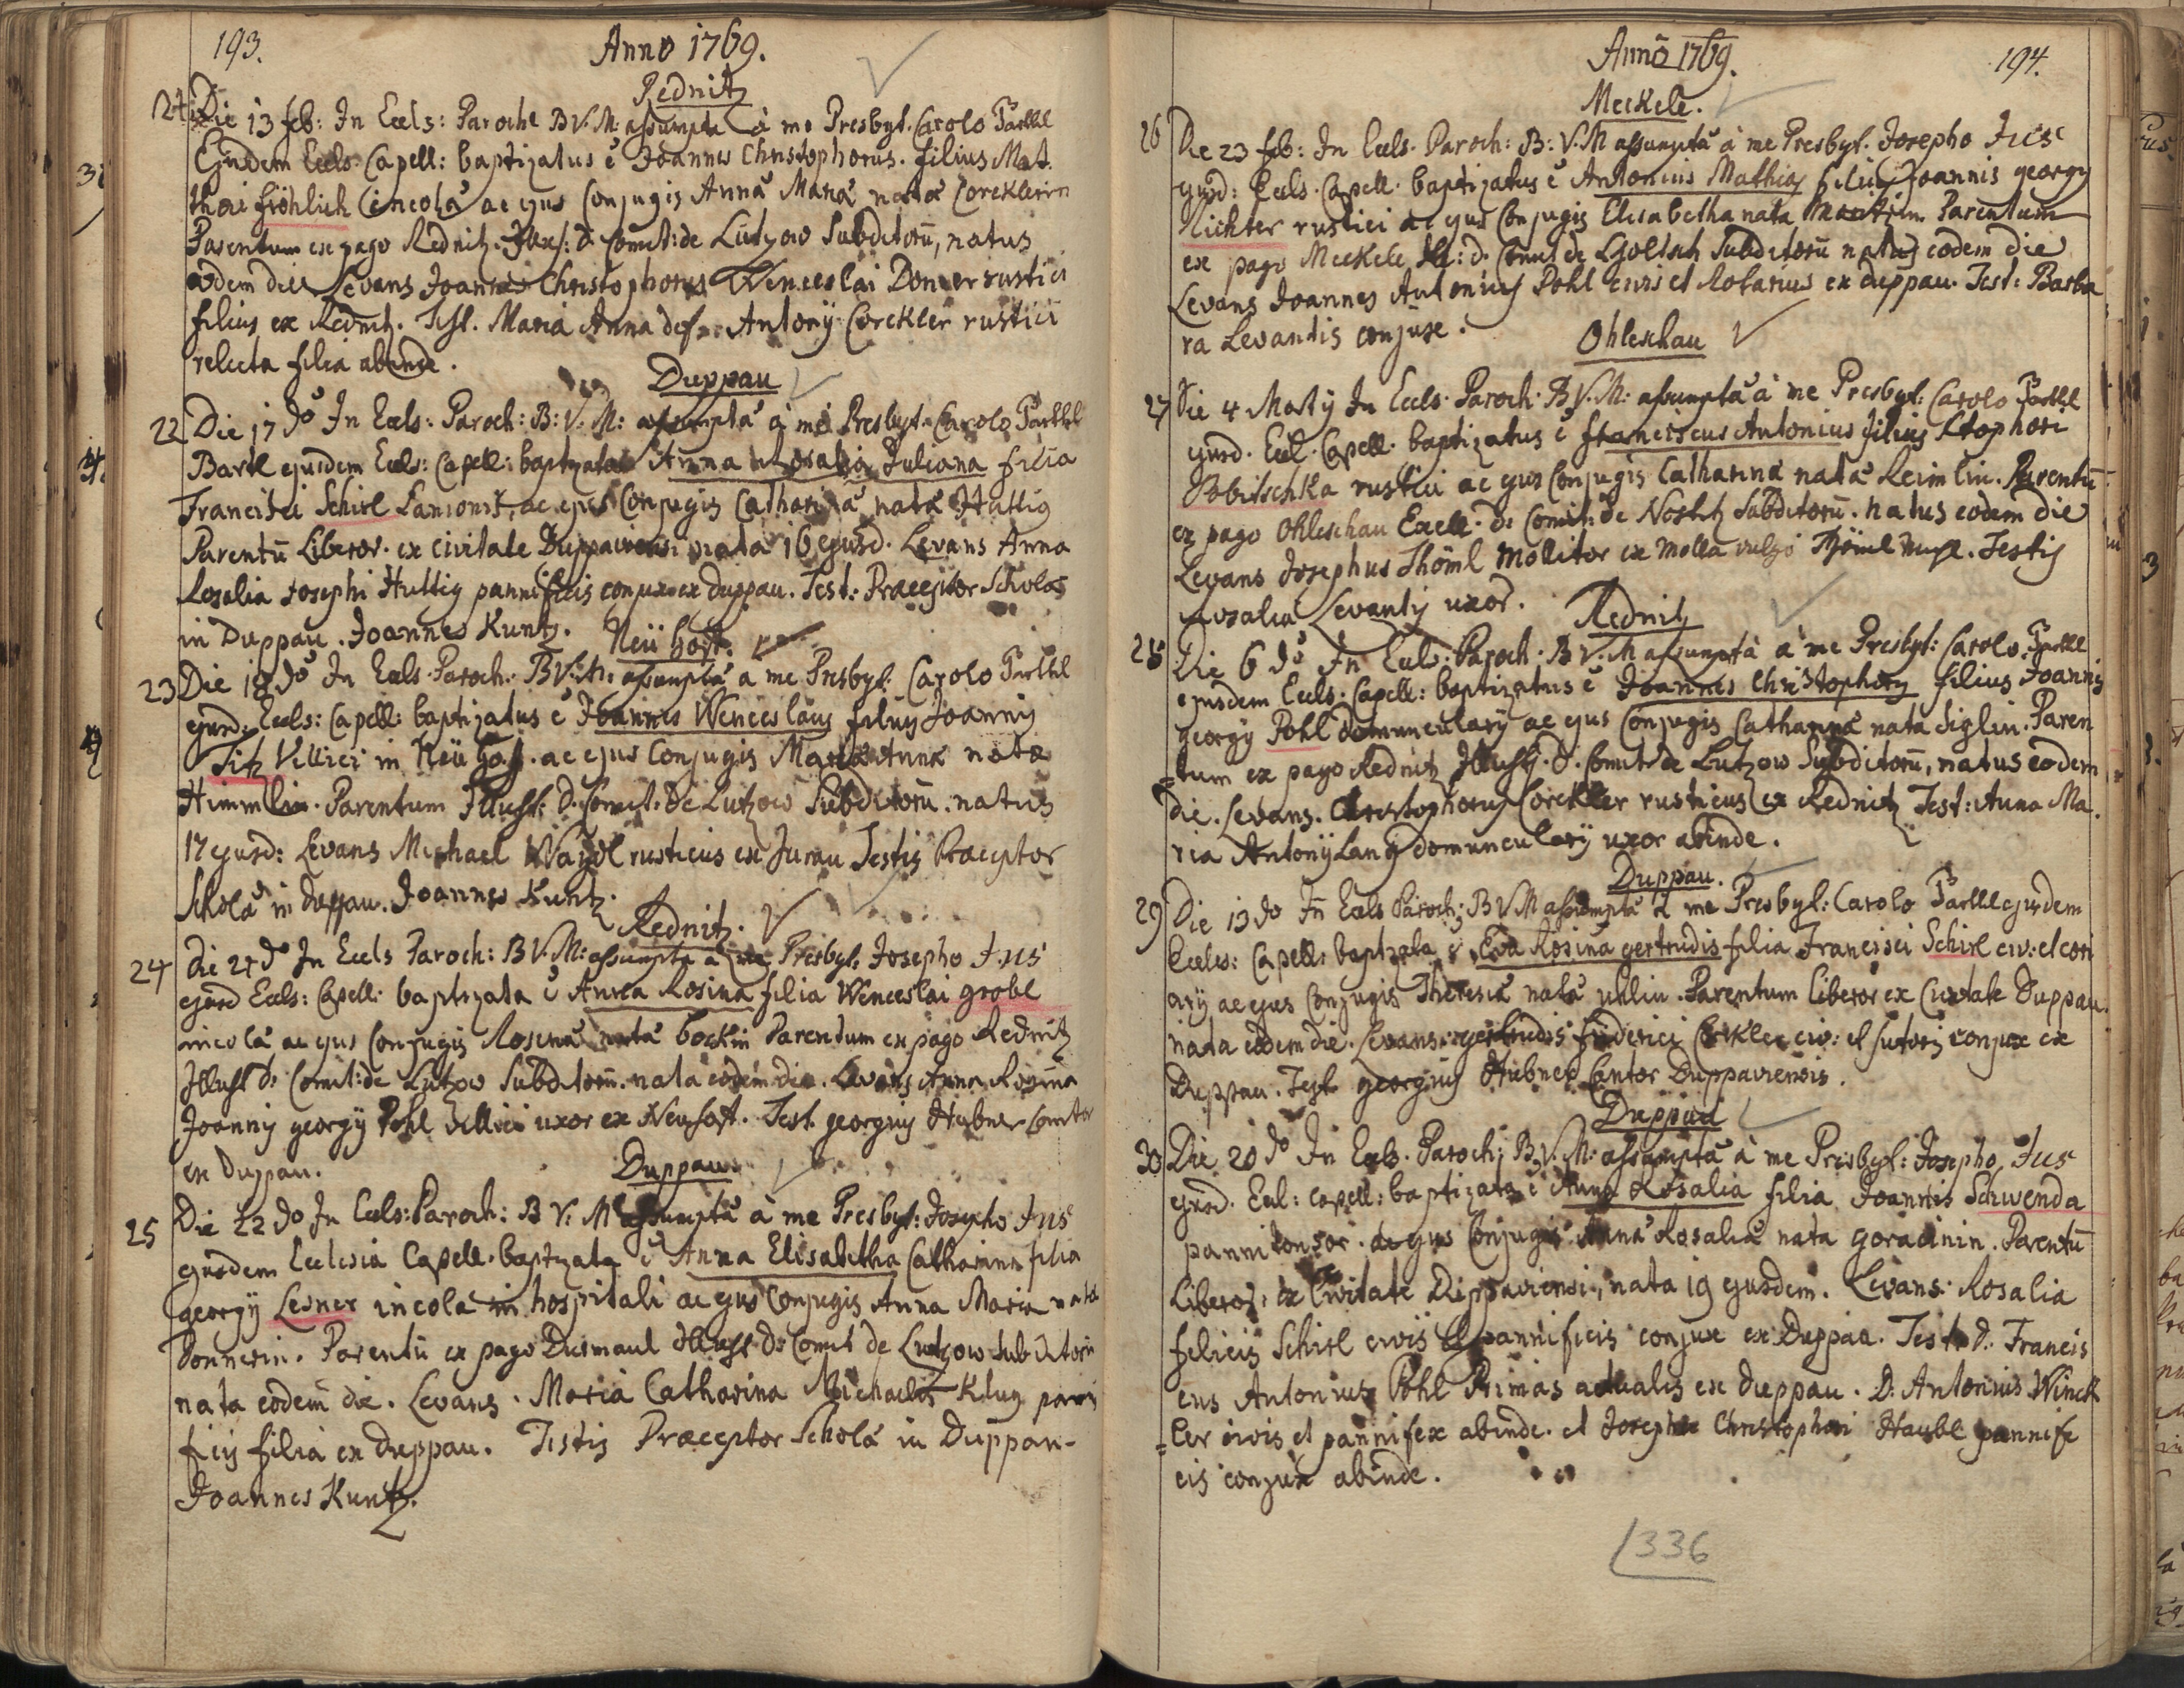 193.
Anno 1769.
Rednitz
Die 13 feb: In Eccls: Paroch: B.V.M: assumpta à me Presbyt. Carolo
Ejusdem Eccls. Capell: baptizatus é Joannes Christophorus. filius Mat.
thaei fröhlich incola ac ejus Conjugis Anna Maria nata Corcklerin
Parentum ex pago Rednitz. Illust: D. Comit: de Lützow Subditorū, natus
eodem die Levans Joannes Christophorus Wenceslai Donner rustici
filius ex Rednitz. Test. Maria Anna def: Antonÿ Corckler rustici
relicta filia abinde.
Duppau
22 Die 17 do In Eccls: Paroch: B: V: M: assumptâ à me Presbyt. Carolo
Bartl ejusdem Eccls: Capell: baptizata Anna Rosalia Juliana filia
Francisci Schirl Lanionis, ac ejus Conjugis Catharinâ natâ Huttig
Parentū Liberor. ex civitate Duppaviensi nata 16 ejusd. Levans Anna
Rosalia Josephi Huttig pannificis conjux ex Duppau. Test: Praeceptor Scholae
in Duppau. Joannes Kuntz.
Neü hoff.
23 Die 18 do In Eccls. Paroch: B.V.M: assumptâ a me Presbyt: Carolo
ejusd. Eccls: Capell: baptizatus é Joannes Wenceslaus filius Joannis
Sitz Villici in Neü hoff. ac ejus Conjugis Maria Anna nata
Himmlin. Parentum Illust: D. Comit: de Lutzow Subditorū. natus
17 ejusd: Levans Michael rusticus ex Jurau Testis Praeceptor
Schola in Duppau. Joannes Kuntz.
Rednitz.
24 Die 21 d In Eccls Paroch: B.V.M: assumpta à me Presbyt: Josepho Jus
ejusd Eccls: Capell: baptizata é Anna Rosina filia Wenceslai grobl
incola ac ejus Conjugis Rosina nata böckin Parentum ex pago Rednitz
Illust D: Comit: de Lutzow Subditorū. nata eodem die. Levans Anna Rosina
Joannis georgÿ Pohl villici uxor ex Neuhoff. Test. georgius Hübner Cantor
ex Duppau.
Duppau.
25 Die 22 do In Eccls: Paroch: B V: M assumptâ à me Presbyt: Josepho Jus
ejusdem Ecclesia Capell. baptizata é Anna Elisabetha Catharina filia
georgÿ Lesner incola in hospitali ac ejus Conjugis Anna Maria nata
Donnerin. Parentū ex pago Durmaul Illust D: Comit de Lutzow Subditorū
nata eodem die. Levans. Maria Catharina Michaelis Klug panni
ficis filia ex Duppau. Testis Praeceptor Schola in Duppau.
Joannes Kuntz.
Anno 1769.
194.
Meckele.
26 Die 23 feb: In Eccls. Paroch: B: V. M assumptâ à me Presbyt. Josepho Jus
ejusd: Eccls. Capell. baptizatus é Antonius Mathias filius Joannis georgÿ
Richter rustici ac ejus Conjugis Elisabetha nata Parentum
ex pago Meckele Ill: D. Comit de Goltsch Subditorū natus eodem die
Levans Joannes Antonius Pohl civis et Rotarius ex duppau. Test: Barba
ra Levantis conjux.
Ohleschau
27 Die 4 Martÿ In Eccls. Paroch. B.V.M: assumptâ à me Presbyt: Carolo
ejusd. Eccl. Capell. baptizatus é franciscus Antonius filius Xtophori
Pobitschka rustici ac ejus Conjugis Catharina natâ Reimlin. Parentū
ex pago Ohleschau Excell. D: Comit: de Nostitz Subditorū. natus eodem die
Levans Josephus Thöml Mollitor ex Molla vulgo Thöml Muhl. Testis
Rosalia Levantis uxor.
Rednitz
28 Die 6 do In Eccls: Paroch. B V: M assumptâ à me Presbyt: Carolo
ejusdem Eccls. Capell: baptizatus é Joannes Christophorus filius Joannis
georgÿ Pohl domuncularÿ ac ejus Conjugis Catharina nata Siglin. Paren
tum ex pago Rednitz Illust. D. Comit de Lutzow Subditorū, natus eodem
die. Levans. Christophorus Corckler rusticus ex Rednitz Test: Anna Ma
ria Antonÿ Lang domuncularÿ uxor abinde.
Duppau.
29 Die 13 do In Eccls Paroch: B V M assumpta à me Presbyt: Carolo ejusdem
Eccles: Capell: baptizata é Eva Rosina gertrudis filia Francisci Schirl civ: et cori
arÿ ac ejus Conjugis Theresia natâ Uhlin. Parentum Liberor ex Civitate Duppau.
nata eodem die. Levans: gertrudis friderici Corkler civ: et sutoris conjux ex
Duppau. Test georgius Hübner Cantor Duppaviensis.
Duppau
30 Die 20 do In Eccls. Paroch: B.V. M: assumptâ à me Presbyt: Josepho Jus
ejusd. Eccl: Capell: baptizata é Anna Rosalia filia Joannis Schwenda
panni tonsor. ac ejus Conjugis Anna Rosalia nata goradinin. Parentū
Liberor: ex Civitate Duppaviensi, nata 19 ejusdem. Levans. Rosalia
felicis Schirl civis et pannificis conjux ex Duppau. Test D: Francis
cus Antonius Pohl Primas actualis ex duppau. D: Antonius Winck
ler civis et pannifex abinde. et Josepha Christophori Haubl pannifi
cis conjux abinde.
336